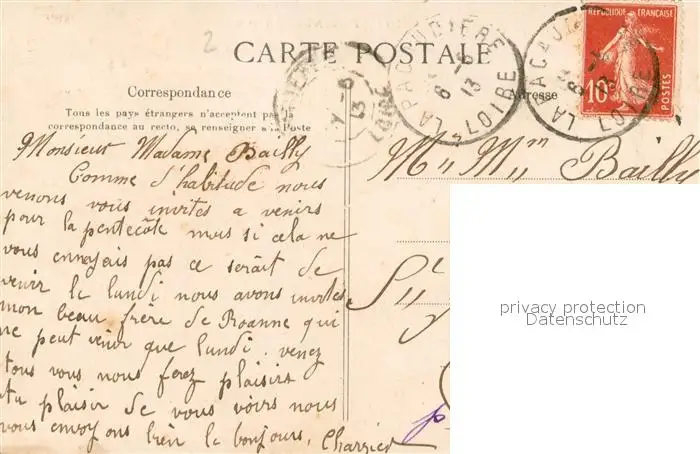 2
CARTE POSTALE
RÉPUBLIQUE FRANÇAISE
10c
POSTES
LA PACAUDIÈRE
6 -6 13
LOIRE
LA PACAUDIÈRE
LOIRE
-6 13
LOIRE
Correspondance
Adresse
Tous les pays étrangers n'acceptent pas la
correspondance au recto, se renseigner à la Poste
Monsieur Madame Bailly
Comme d'habitude nous
venons vous invités a venirs
pour la pentecôte mais si cela ne
vous ennuyais pas ce serait de
venir le lundi nous avons invités
mon beau frère de Roanne qui
ne peut venir que lundi. venez
tous vous nous ferez plaisirs
Au plaisir de vous voirs nous
vous envoyons bien le bonjours,
Charrier
Mr Mm Bailly
St
privacy protection
Datenschutz